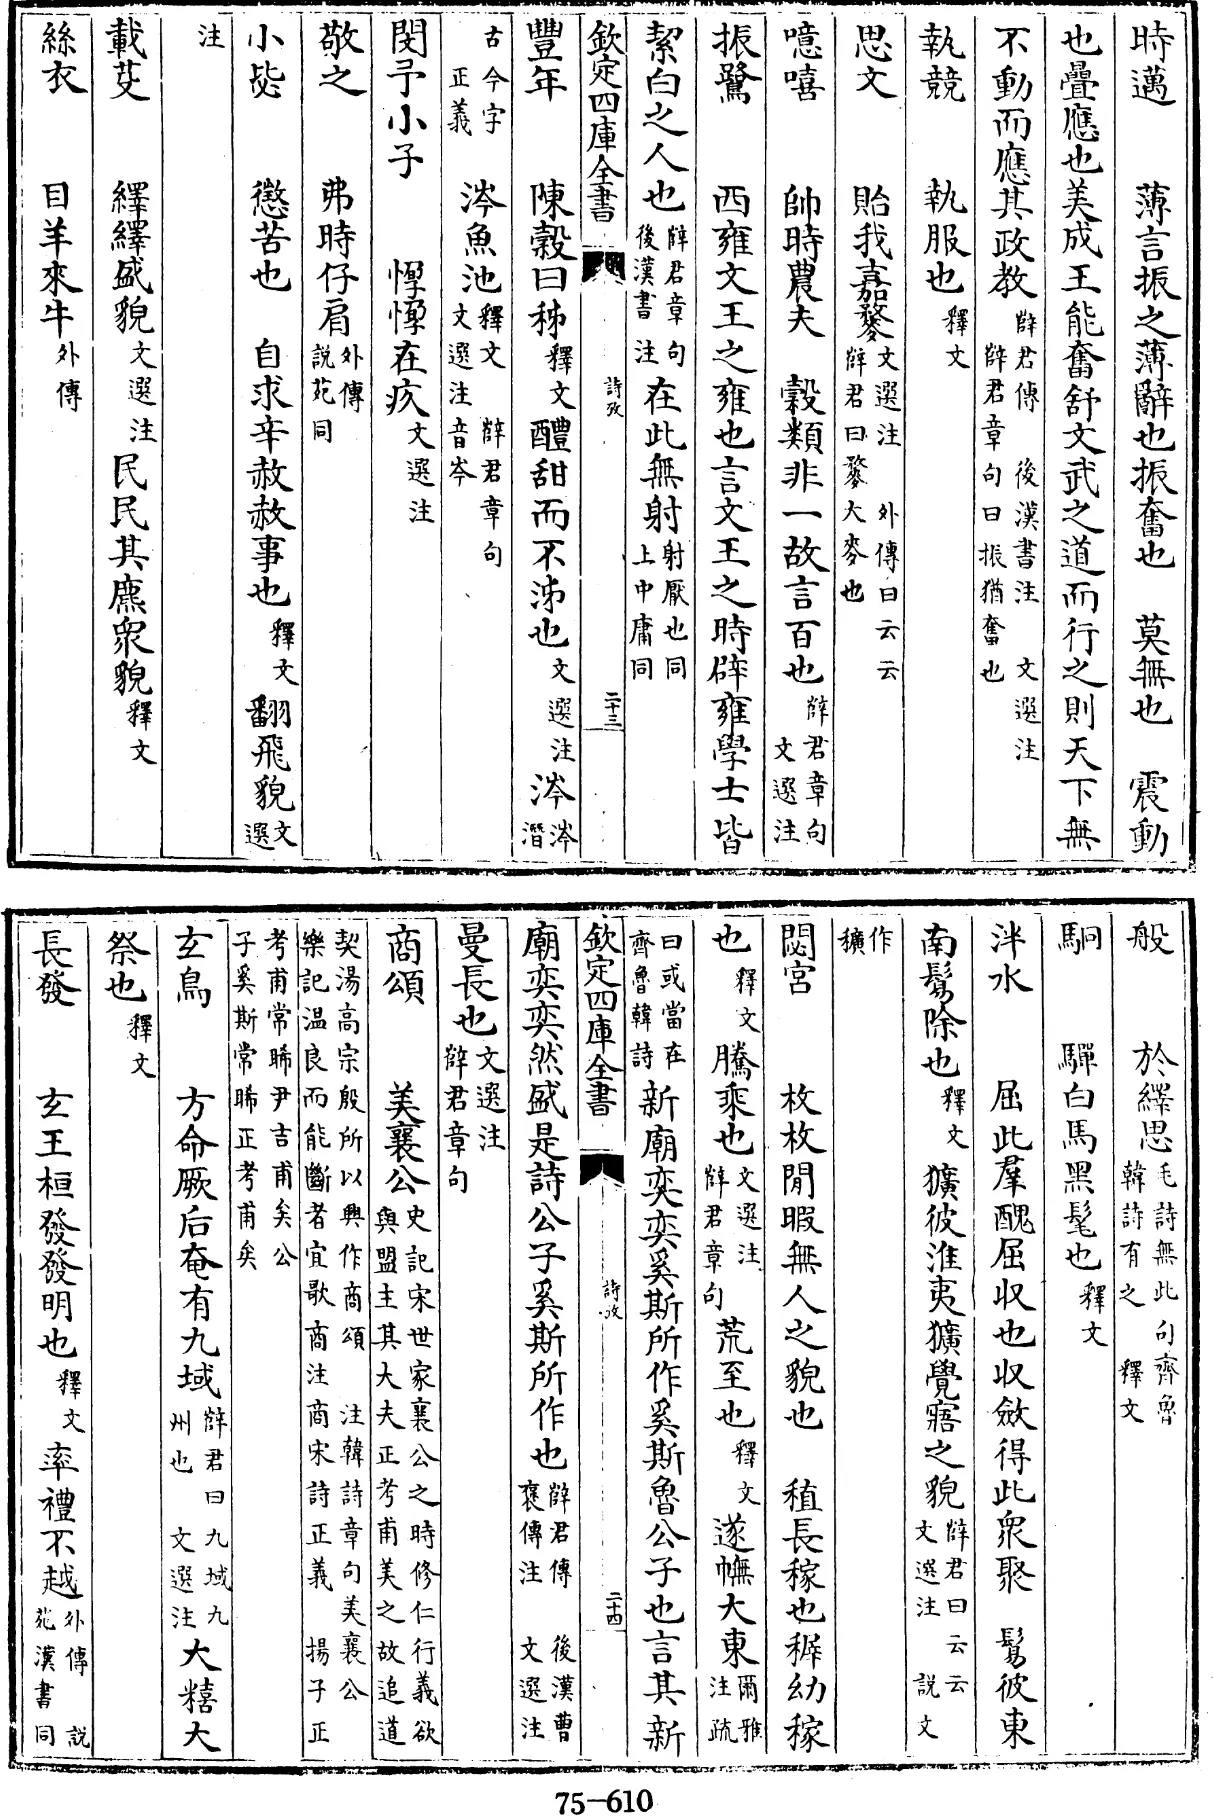 時邁　薄言振之薄辭也振奮也　莫無也　震動
也疊應也美成王能奮舒文武之道而行之則天下無
不動而應其政教薛君傳　後漢書注　文選注薛君章句曰振猶奮也
執競　執服也釋文
思文　貽我嘉麰文選注　外傳曰云云薛君曰麰大麥也
噫嘻　帥時農夫　穀類非一故言百也薛君章句文選注
振鷺　西雍文王之雍也言文王之時辟雍學士皆
絜白之人也薛君章句後漢書注在此無射射厭也同上中庸同
欽定四庫全書　詩攷　二十三
豐年　陳穀曰秭釋文醴甜而不泲也文選注涔涔潛
古今字正義　涔魚池釋文　薛君章句文選注音岑
閔予小子　惸惸在疚文選注
敬之　弗時仔肩外傳說苑同
小毖　懲苦也　自求辛赦赦事也釋文翻飛貌文選
注
載芟　繹繹盛貌文選注民民其麃衆貌釋文
絲衣　自羊來牛外傳
般　於繹思毛詩無此句齊魯韓詩有之　釋文
駉　驒白馬黑髦也釋文
泮水　屈此羣醜屈収也収斂得此衆聚　鬄彼東
南鬄除也釋文　獷彼淮夷獷覺寤之貌薛君曰云云文選注　說文
作穬
閟宮　枚枚閒暇無人之貌也　稙長稼也稺幼稼
也釋文　騰乘也文選注薛君章句　荒至也釋文　遂幠大東爾雅注疏
曰或當在齊魯韓詩　新廟奕奕奚斯所作奚斯魯公子也言其新
欽定四庫全書　詩攷　二十四
廟奕奕然盛是詩公子奚斯所作也薛君傳　後漢曹褒傳注　文選注
曼長也文選注薛君章句
商頌　美襄公史記宋世家襄公之時修仁行義欲與盟主其大夫正考甫美之故追道
契湯高宗殷所以興作商頌　注韓詩章句美襄公樂記温良而能斷者宜歌商注商宋詩正義　揚子正
考甫常睎尹吉甫矣公子奚斯常睎正考甫矣
玄鳥　方命厥后奄有九域薛君曰九域九州也　文選注大糦大
祭也釋文
長發　玄王桓發發明也釋文　率禮不越外傳　說苑漢書同
75-610